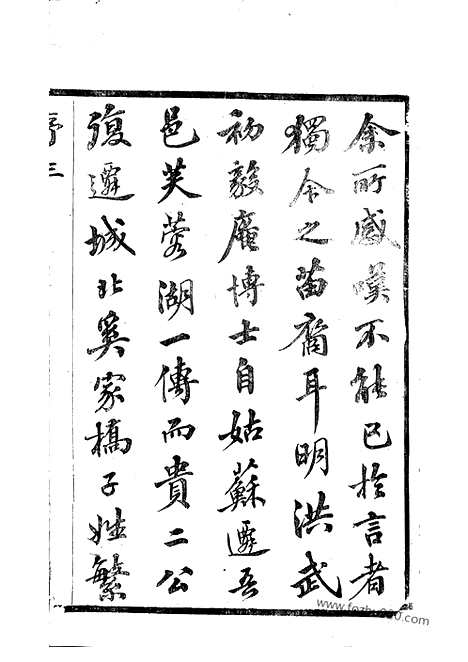 余所感嘆不能已於言者
獨今之苗裔耳明洪武
初毅庵博士自姑蘇遷吾
邑芙蓉湖一傳而貴二公
復遷城北奚家橋子姓繁
序 三